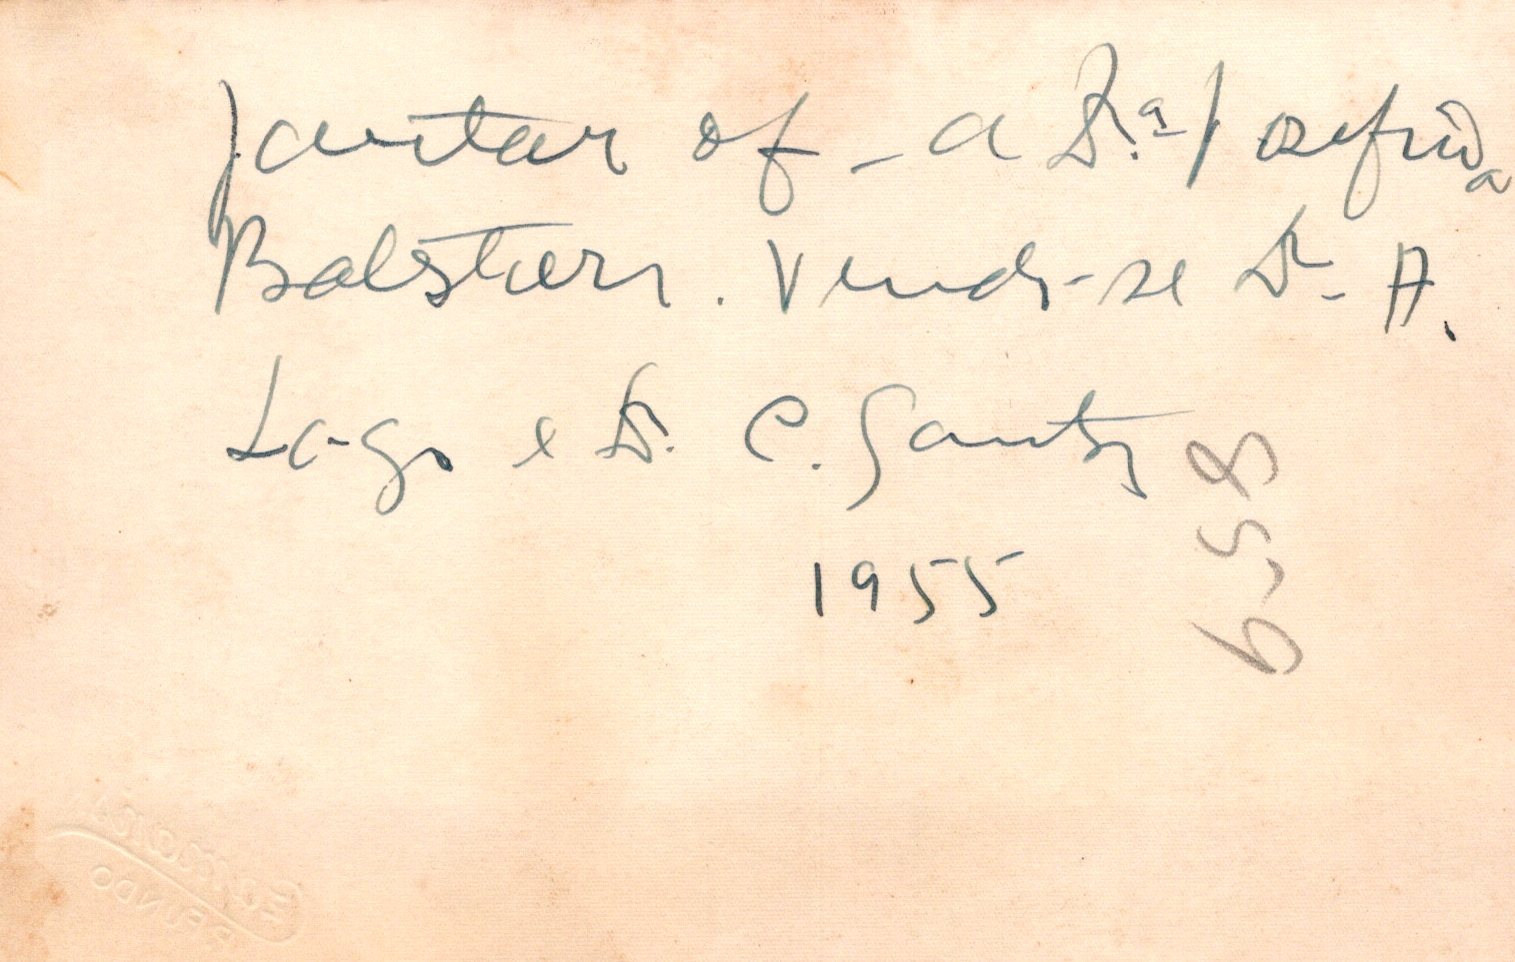 Jantar of - a D.ª Josefina
Balstier. Vendo-se Dr. A.
Lago e Dr. C. Santos
1955
P. FUNDO